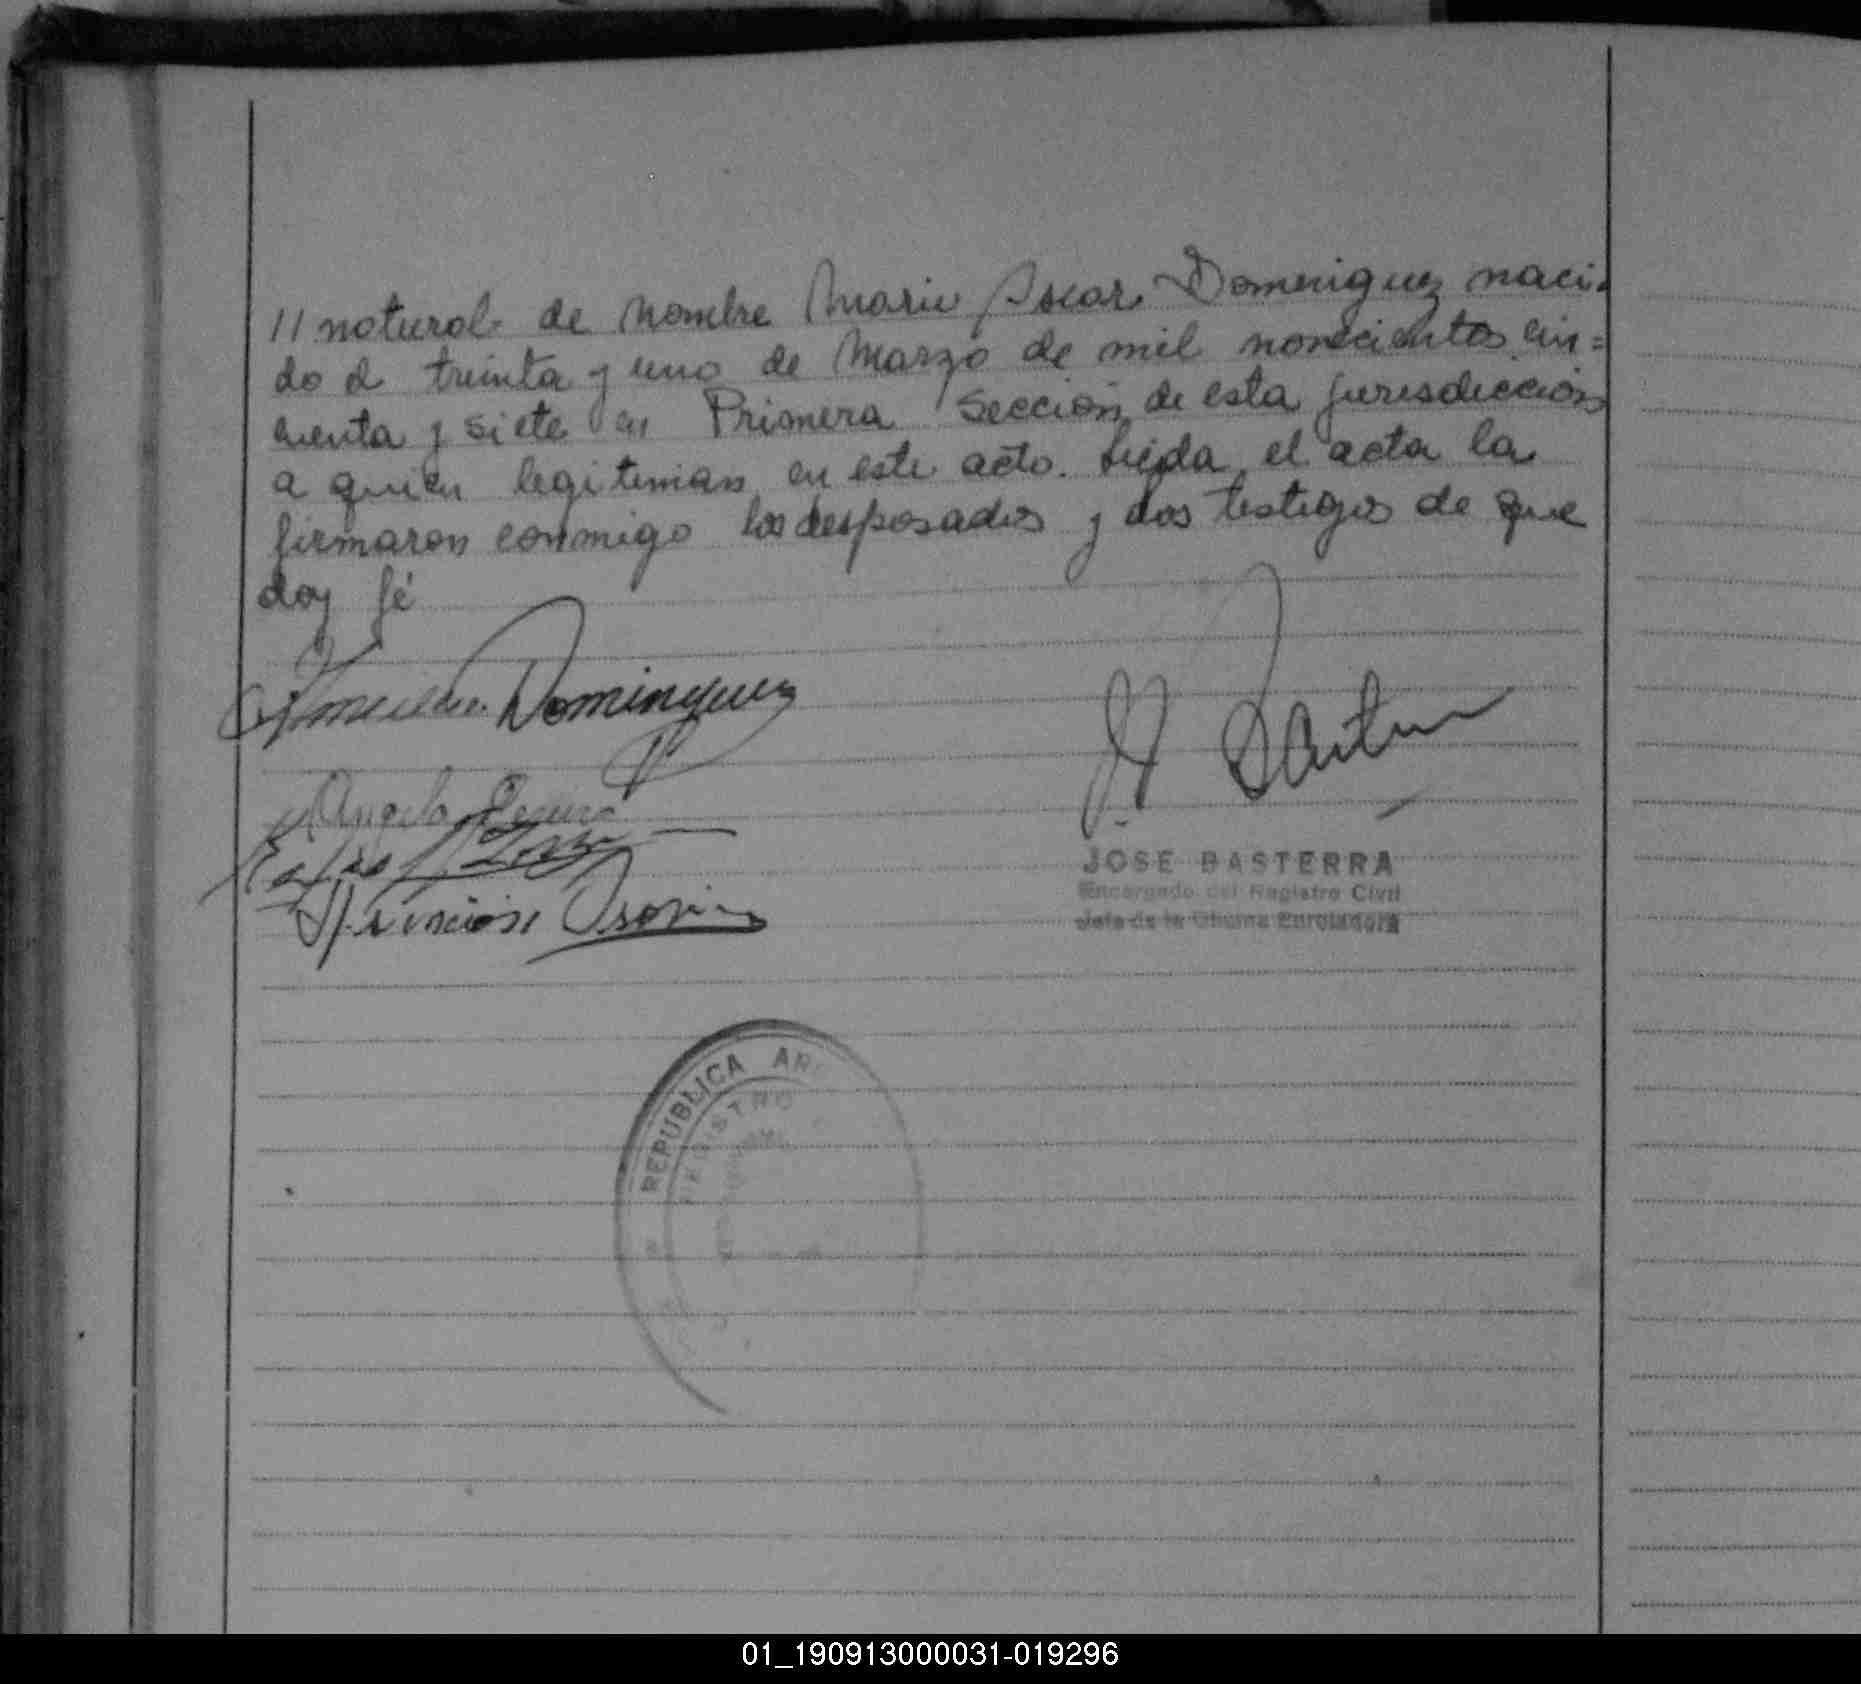 // natural de nombre Mario Oscar Dominguez naci-
do el treinta y uno de Marzo de mil novecientos cin=
cuenta y siete en Primera Sección de esta jurisdicción
a quien legitiman en este acto. Leida el acta la
firmaron conmigo los desposados y dos testigos de que
doy fé
Dominguez
Angela
JOSE BASTERRA
Encargado del Registro Civil
Jefe de la Oficina Enroladora
Asunción Osorio
REPUBLICA AR
REGISTRO
01_190913000031-019296